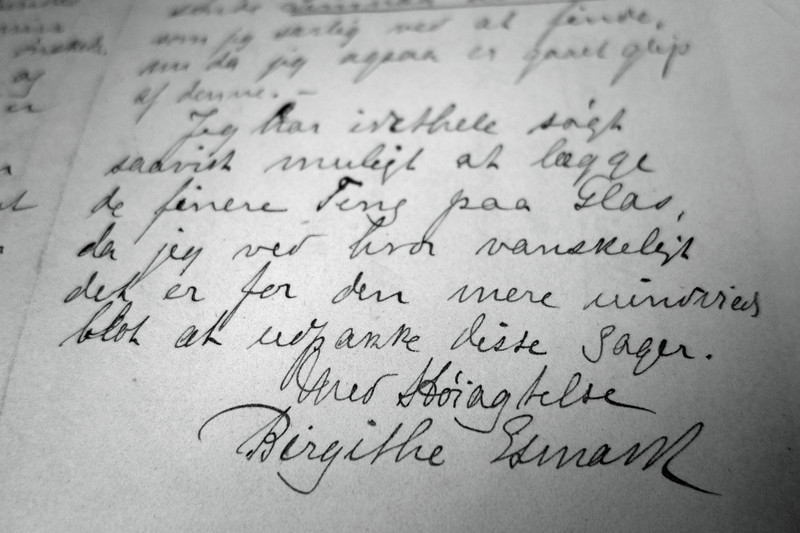 som jeg særlig ved at finde,
nu da jeg ogsaa er gaaet glip
af denne. –
Jeg har idethele søgt
saavidt muligt at lægge
de finere Ting paa Glas,
da jeg ved hvor vanskeligt
det er for den mere uindvied
blot at udpakke disse Sager.
Med Høiagtelse
Birgithe Esmark